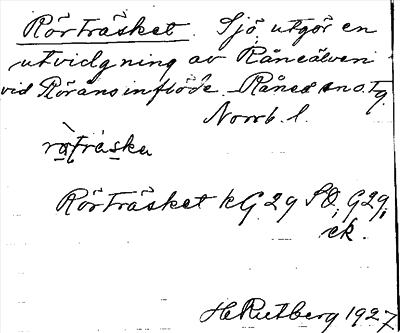 Rörträsket. Sjö, utgör en
utvidgning av Råneälven
vid Röråns inflöde. Råneå sn o. tg.
Norrb. l.
Rörträsket kG 29 SO, G29,
ek.
H Rutberg 1927